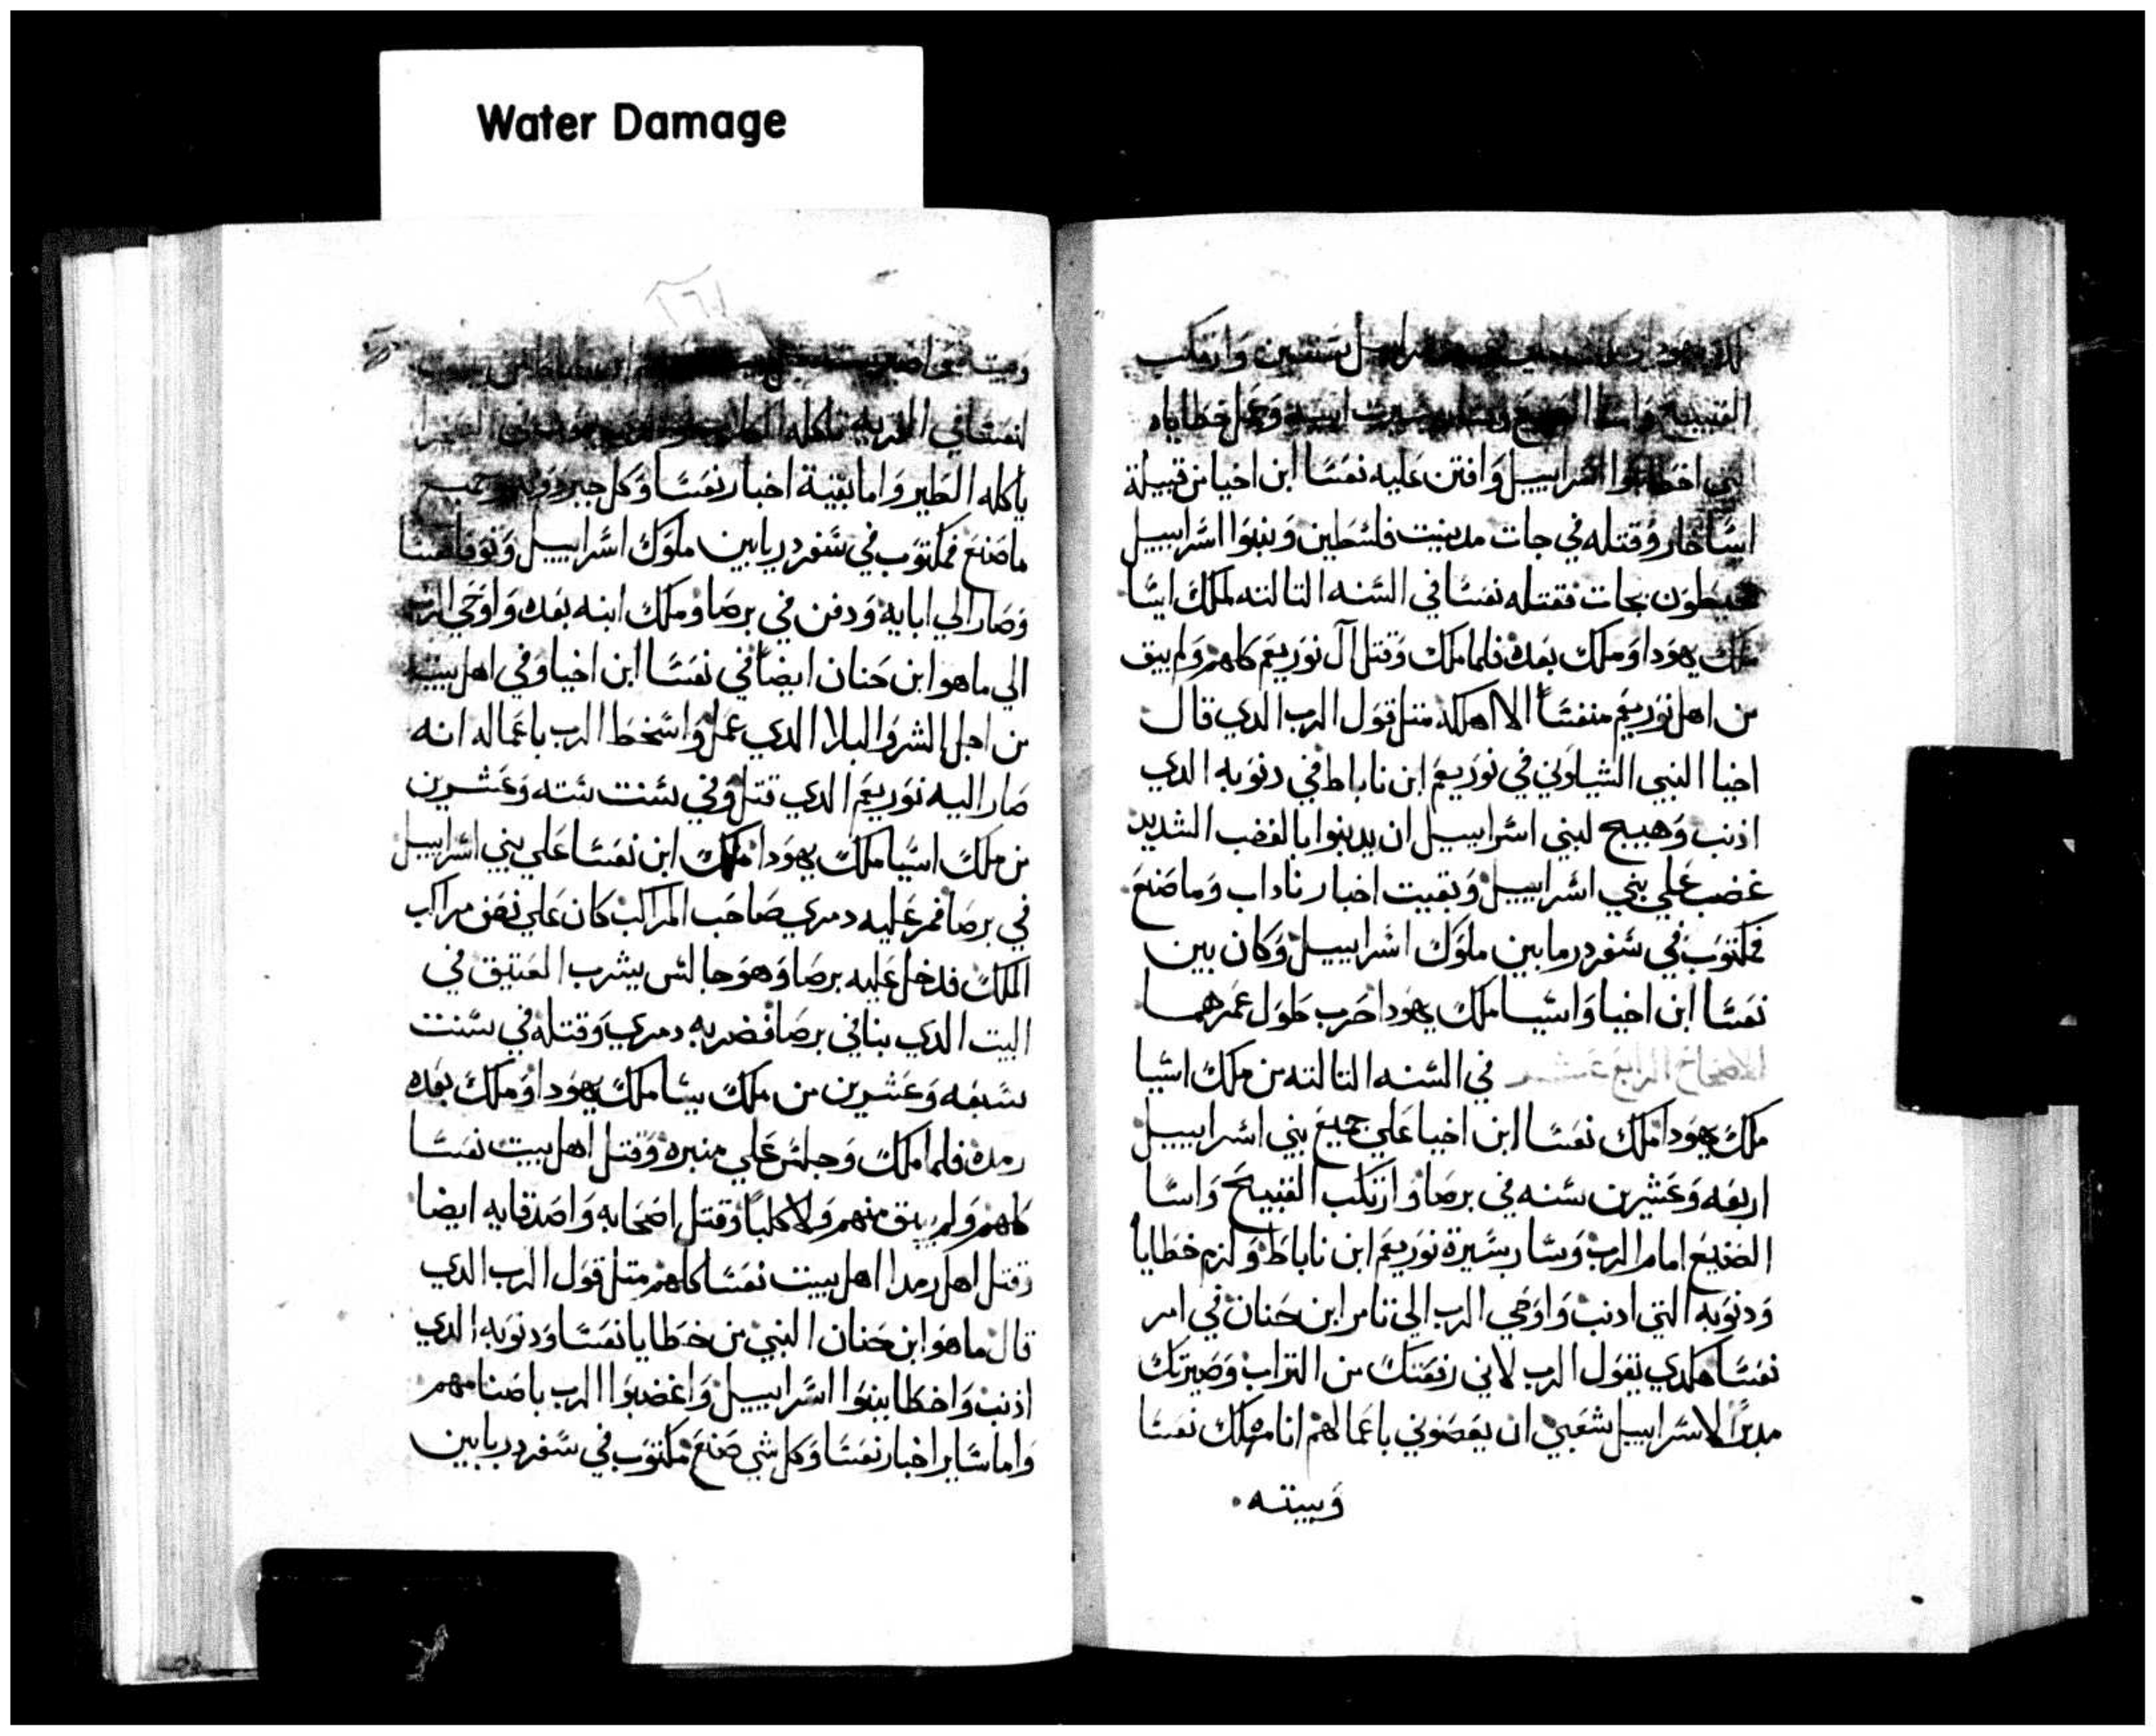 Water Damage
وارتكب
القبيح وعمل خطاياه
اسراييل وافتن عليه نعسا ابن احيا من قبيلة
اساخار وقتله في جات مدينت فلسطين وبنوا اسراييل
بجات فقتله نعسا في السنه التالته لملك اسا
ملك يهودا وملك بعده فلما ملك وقتل ال نوربعم كلهم ولم يبق
من اهل نوربعم منفسا الا اهلكه متل قول الرب الدي قال
احيا النبي الشيلوني في نوربعم ابن ناباط في دنوبه الدي
اذنب وهييج لبني اسراييل ان يدنبوا بالغضب الشديد
غضب علي بني اسراييل وبقيت اخبار ناداب وما صنع
فمكتوب في سفر درمابين ملوك اسراييل وكان بين
نعسا ابن احيا واسيا ملك يهودا حرب طول عمرهما
في السنه التالته من ملك اسيا
ملك يهودا ملك نعسا ابن احيا علي جميع بني اسراييل
اربعه وعشرين سنه في برصا وارتكب القبيح واسا
الصنيع امام الرب وسار بسيرة نوربعم ابن ناباط ولزم خطايا
ودنوبه التي ادنب واوحي الرب الي ابن حنان في امر
نعسا هكدي يقول الرب لاني رفعتك من التراب وصيرتك
مدبرا لاسراييل شعبي ان يغضبوني باعمالهم انا مهلك نعسا
وبيته
١٦١
لنعسا في القريه تاكله الكلاب
ياكله الطير واما بقية اخبار نعسا وكل جبروته وجميع
ما صنع فمكتوب في سفر دريابين ملوك اسراييل وتوفا نعسا
وصار الي ابايه ودفن في برصا وملك ابنه بعده واوحي الرب
الي ماهو ابن حنان ايضا في نعسا ابن احيا وفي اهل بيته
من اجل الشر والبلا الدي عمل واسخط الرب باعماله انه
صار اليه نوربعم الدي قتل وفي سنت سته وعشرين
من ملك اسيا ملك يهودا ملك ابن نعسا علي بني اسراييل
في برصا فمر عليه دمري صاحب المراكب كان علي نصف مراكب
الملك فدخل عليه برصا وهو جالس يشرب العتيق في
البت الدي بنا في برصا فضربه دمري وقتله في سنت
سبعه وعشرين من ملك يسا ملك يهودا وملك بعده
رمده فلما ملك وجلس علي منبره وقتل اهل بيت نعسا
كلهم ولم يبق منهم ولا كلبا وقتل اصحابه واصدقايه ايضا
وقتل اهل رمدا اهل بيت نعسا كلهم متل قول الرب الدي
قال ماهو ابن حنان النبي من خطايا نعسا ودنوبه الدي
اذنب واخطا بينوا اسراييل واغضبوا الرب باصنامهم
واما ساير اخبار نعسا وكل شي صنع مكتوب في سفر دريابين